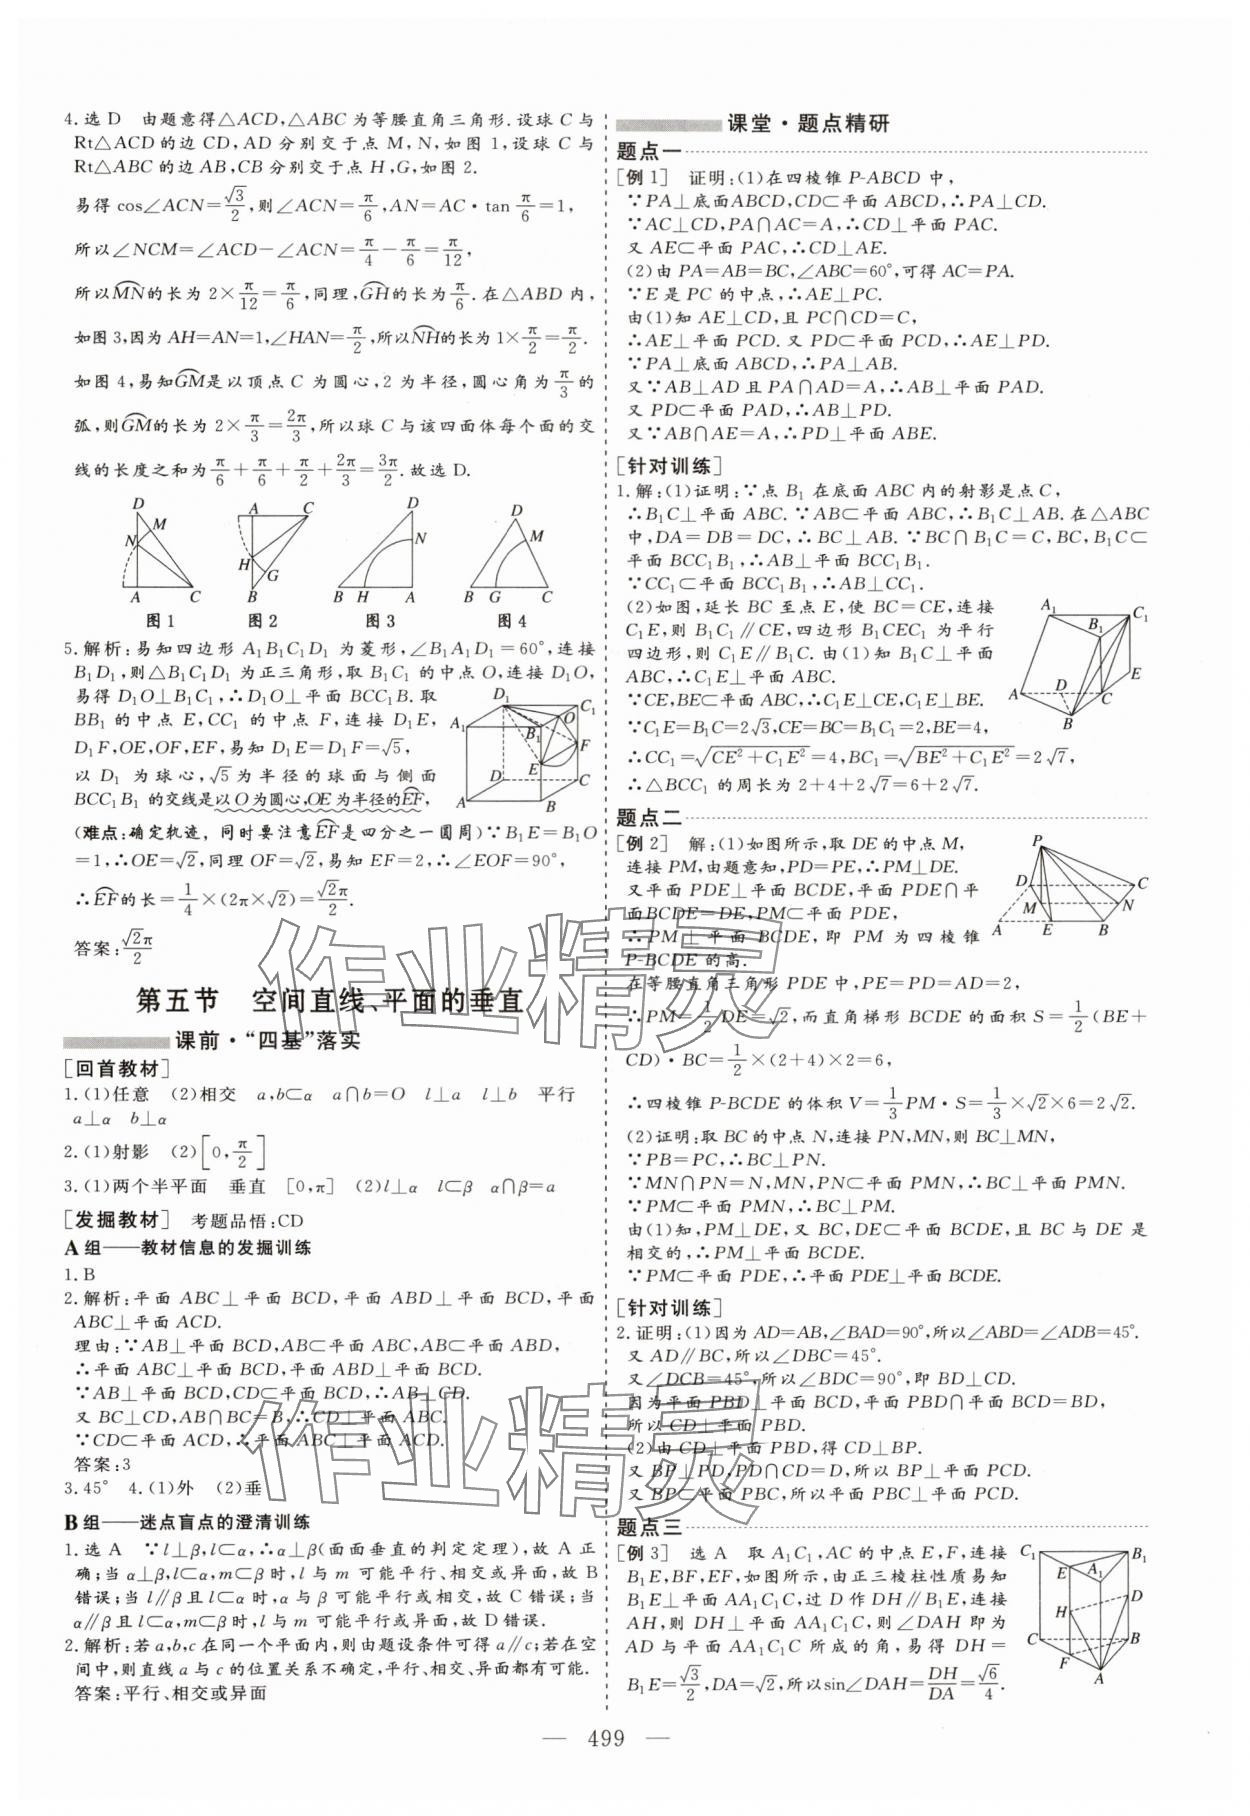 4.选 D　由题意得△ACD,△ABC为等腰直角三角形.设球 C 与
Rt△ACD的边 CD,AD 分别交于点 M,N,如图 1,设球 C 与
Rt△ABC的边 AB,CB 分别交于点 H,G,如图 2.
易得 cos∠ACN=√3/2,则∠ACN=π/6,AN=AC·tan π/6=1,
所以∠NCM=∠ACD−∠ACN=π/4−π/6=π/12,
所以M͡N的长为 2×π/12=π/6,同理,G͡H的长为π/6.在△ABD内,
如图3,因为 AH=AN=1,∠HAN=π/2,所以N͡H的长为 1×π/2=π/2.
如图 4,易知G͡M是以顶点 C 为圆心,2 为半径,圆心角为π/3的
弧,则G͡M的长为 2×π/3=2π/3,所以球 C 与该四面体每个面的交
线的长度之和为π/6+π/6+π/2+2π/3=3π/2.故选 D.
D M N A C
A C H G B
D N B H A
D M B G C
图 1　图 2　图 3　图 4
5.解析:易知四边形 A₁B₁C₁D₁ 为菱形,∠B₁A₁D₁=60°,连接
B₁D₁,则△B₁C₁D₁为正三角形,取B₁C₁的中点O,连接D₁O,
易得 D₁O⊥B₁C₁,∴D₁O⊥平面 BCC₁B₁.取
BB₁ 的中点 E,CC₁ 的中点 F,连接 D₁E,
D₁F,OE,OF,EF,易知 D₁E=D₁F=√5,
以 D₁ 为球心,√5为半径的球面与侧面
BCC₁B₁的交线是以O为圆心,OE为半径的E͡F,
D₁ C₁ O A₁ B₁ F E D C A B
(难点:确定轨迹,同时要注意E͡F是四分之一圆周)∵B₁E=B₁O
=1,∴OE=√2,同理 OF=√2,易知 EF=2,∴∠EOF=90°,
∴E͡F的长=1/4×(2π×√2)=√2π/2.
答案:√2π/2
第五节　空间直线、平面的垂直
课前·“四基”落实
[回首教材]
1.(1)任意　(2)相交　a,b⊂α　a∩b=O　l⊥a　l⊥b　平行
a⊥α　b⊥α
2.(1)射影　(2)[0,π/2]
3.(1)两个半平面　垂直　[0,π]　(2)l⊥α　l⊂β　α∩β=a
[发掘教材]　考题品悟:CD
A 组——教材信息的发掘训练
1.B
2.解析:平面 ABC⊥平面 BCD,平面 ABD⊥平面 BCD,平面
ABC⊥平面 ACD.
理由:∵AB⊥平面 BCD,AB⊂平面 ABC,AB⊂平面 ABD,
∴平面 ABC⊥平面 BCD,平面 ABD⊥平面 BCD.
∵AB⊥平面 BCD,CD⊂平面 BCD,∴AB⊥CD.
又 BC⊥CD,AB∩BC=B,∴CD⊥平面 ABC.
∵CD⊂平面 ACD,∴平面 ABC⊥平面 ACD.
答案:3
3.45°　4.(1)外　(2)垂
B 组——迷点盲点的澄清训练
1.选 A　∵l⊥β,l⊂α,∴α⊥β(面面垂直的判定定理),故 A 正
确;当α⊥β,l⊂α,m⊂β时,l 与 m 可能平行、相交或异面,故 B
错误;当 l∥β且 l⊂α时,α与β可能平行或相交,故 C 错误;当
α∥β且 l⊂α,m⊂β时,l 与 m 可能平行或异面,故 D 错误.
2.解析:若a,b,c在同一个平面内,则由题设条件可得a∥c;若在空
间中,则直线a与c的位置关系不确定,平行、相交、异面都有可能.
答案:平行、相交或异面
课堂·题点精研
题点一
[例 1]　证明:(1)在四棱锥 P-ABCD 中,
∵PA⊥底面ABCD,CD⊂平面 ABCD,∴PA⊥CD.
∵AC⊥CD,PA∩AC=A,∴CD⊥平面 PAC.
又 AE⊂平面 PAC,∴CD⊥AE.
(2)由 PA=AB=BC,∠ABC=60°,可得 AC=PA.
∵E 是 PC 的中点,∴AE⊥PC.
由(1)知 AE⊥CD,且 PC∩CD=C,
∴AE⊥平面 PCD.又 PD⊂平面 PCD,∴AE⊥PD.
∵PA⊥底面 ABCD,∴PA⊥AB.
又∵AB⊥AD 且 PA∩AD=A,∴AB⊥平面 PAD.
又 PD⊂平面 PAD,∴AB⊥PD.
又∵AB∩AE=A,∴PD⊥平面 ABE.
[针对训练]
1.解:(1)证明:∵点 B₁ 在底面 ABC 内的射影是点 C,
∴B₁C⊥平面 ABC.∵AB⊂平面 ABC,∴B₁C⊥AB.在△ABC
中,DA=DB=DC,∴BC⊥AB.∵BC∩B₁C=C,BC,B₁C⊂
平面 BCC₁B₁,∴AB⊥平面 BCC₁B₁.
∵CC₁⊂平面 BCC₁B₁,∴AB⊥CC₁.
(2)如图,延长 BC 至点 E,使 BC=CE,连接
C₁E,则 B₁C₁∥CE,四边形 B₁CEC₁ 为平行
四边形,则 C₁E∥B₁C.由(1)知 B₁C⊥平面
ABC,∴C₁E⊥平面 ABC.
A₁ C₁ B₁ E A D C B
∵CE,BE⊂平面 ABC,∴C₁E⊥CE,C₁E⊥BE.
∵C₁E=B₁C=2√3,CE=BC=B₁C₁=2,BE=4,
∴CC₁=√(CE²+C₁E²)=4,BC₁=√(BE²+C₁E²)=2√7,
∴△BCC₁ 的周长为 2+4+2√7=6+2√7.
题点二
[例 2]　解:(1)如图所示,取 DE 的中点 M,
连接 PM,由题意知,PD=PE,∴PM⊥DE.
又平面 PDE⊥平面 BCDE,平面 PDE∩平
面BCDE=DE,PM⊂平面 PDE,
∴PM⊥平面 BCDE,即 PM 为四棱锥
P-BCDE 的高.
P D C M N A E B
在等腰直角三角形 PDE 中,PE=PD=AD=2,
∴PM=1/2DE=√2,而直角梯形 BCDE 的面积 S=1/2(BE+
CD)·BC=1/2×(2+4)×2=6,
∴四棱锥 P-BCDE 的体积 V=1/3PM·S=1/3×√2×6=2√2.
(2)证明:取 BC 的中点 N,连接 PN,MN,则 BC⊥MN,
∵PB=PC,∴BC⊥PN.
∵MN∩PN=N,MN,PN⊂平面 PMN,∴BC⊥平面 PMN.
∵PM⊂平面 PMN,∴BC⊥PM.
由(1)知,PM⊥DE,又 BC,DE⊂平面 BCDE,且 BC 与 DE 是
相交的,∴PM⊥平面 BCDE.
∵PM⊂平面 PDE,∴平面 PDE⊥平面 BCDE.
[针对训练]
2.证明:(1)因为 AD=AB,∠BAD=90°,所以∠ABD=∠ADB=45°.
又 AD∥BC,所以∠DBC=45°.
又∠DCB=45°,所以∠BDC=90°,即 BD⊥CD.
因为平面 PBD⊥平面 BCD,平面 PBD∩平面 BCD=BD,
所以 CD⊥平面 PBD.
(2)由 CD⊥平面 PBD,得 CD⊥BP.
又 BP⊥PD,PD∩CD=D,所以 BP⊥平面 PCD.
又 BP⊂平面 PBC,所以平面 PBC⊥平面 PCD.
题点三
[例 3]　选 A　取 A₁C₁,AC 的中点 E,F,连接
B₁E,BF,EF,如图所示,由正三棱柱性质易知
B₁E⊥平面 AA₁C₁C,过 D 作 DH∥B₁E,连接
AH,则 DH⊥平面 AA₁C₁C,则∠DAH 即为
AD 与平面 AA₁C₁C 所成的角,易得 DH=
B₁E=√3/2,DA=√2,所以sin∠DAH=DH/DA=√6/4.
C₁ B₁ E A₁ D H C B F A
作业精灵
作业精灵
— 499 —